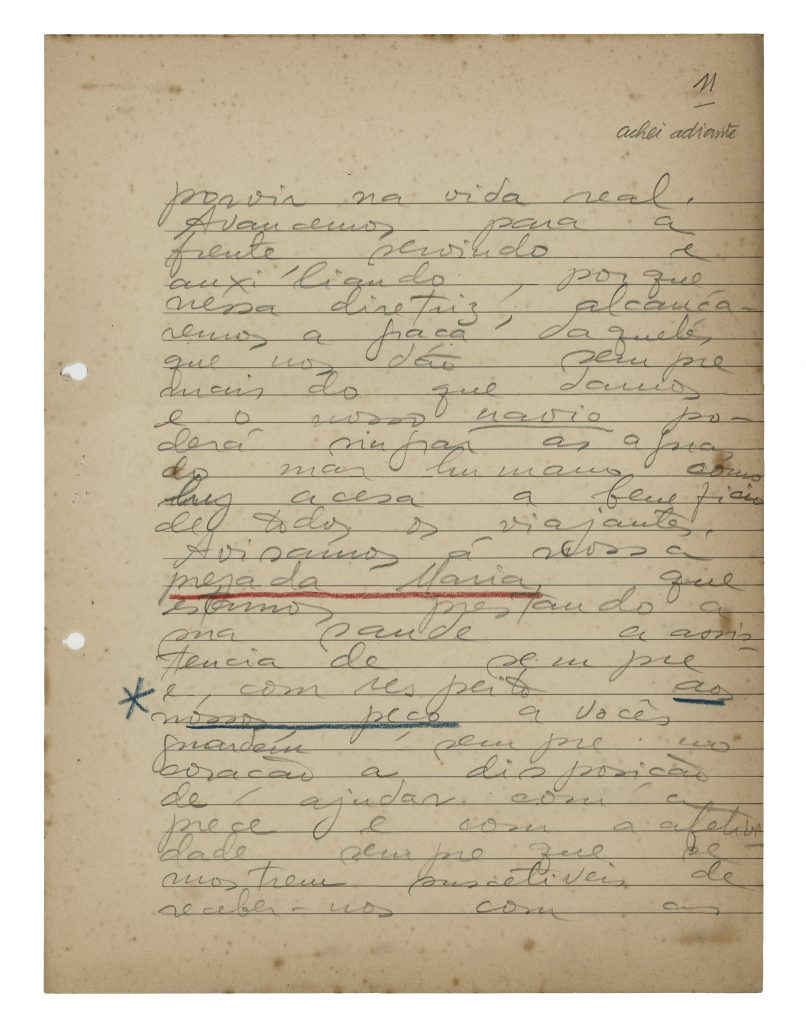 11
achei adiante
porvir na vida real.
Avancemos para a
frente servindo e
auxiliando, porque
nessa diretriz, alcança-
remos a graça daqueles
que nos dão sempre
mais do que damos
e o nosso navio po-
derá singrar as aguas
do mar humano como
luz acesa a beneficio
de todos os viajantes.
Avisamos á nossa
prezada Maria, que
estamos prestando a
sua saude a assis-
tencia de sempre
e, com respeito aos
nossos, peço a vocês
guardem sempre no
coração a disposição
de ajudar com a
prece e com a afetivi-
dade sempre que se
mostrem suscetiveis de
receber-nos com as